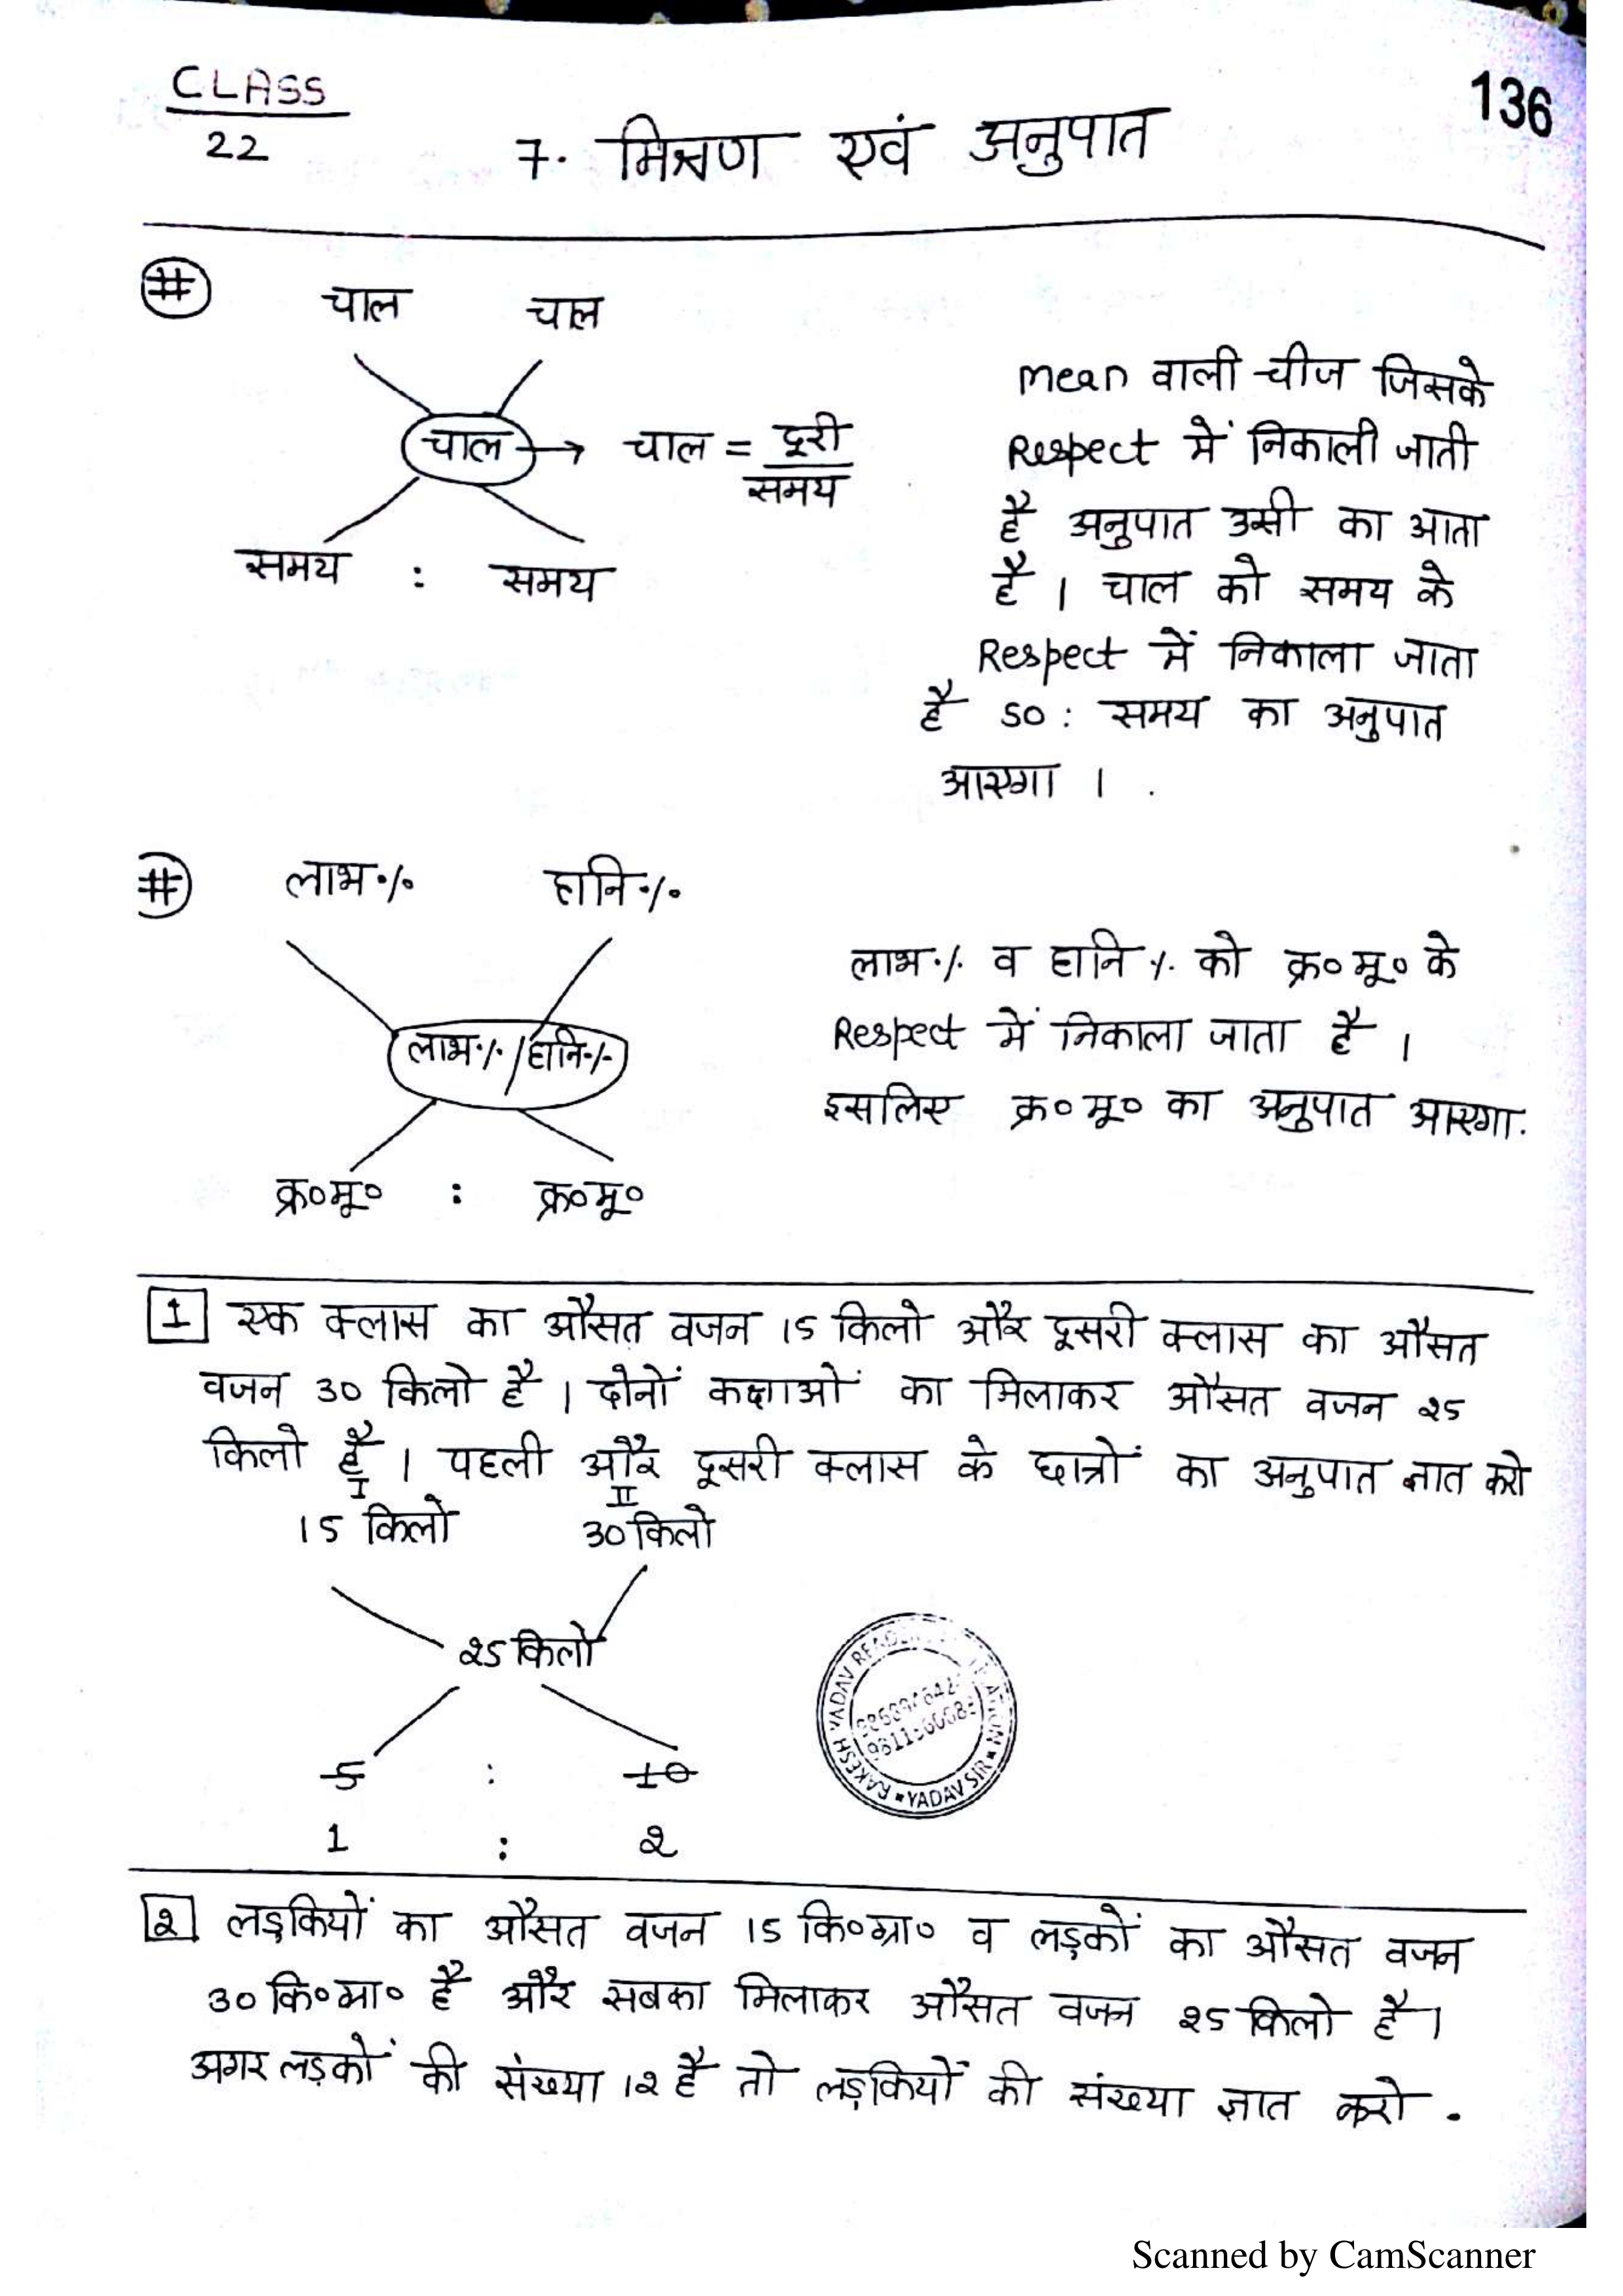 CLASS
22
136
7. मिश्रण एवं अनुपात
# चाल चाल
चाल → चाल = दूरी
समय
समय : समय
mean वाली चीज जिसके
Respect में निकाली जाती
है अनुपात उसी का आता
है । चाल को समय के
Respect में निकाला जाता
है so : समय का अनुपात
आएगा ।
# लाभ% हानि%
लाभ% / हानि%
क्र०मू० : क्र०मू०
लाभ% व हानि % को क्र०मू० के
Respect में निकाला जाता है ।
इसलिए क्र०मू० का अनुपात आएगा.
1 एक क्लास का औसत वजन 15 किलो और दूसरी क्लास का औसत
वजन 30 किलो है । दोनों कक्षाओं का मिलाकर औसत वजन 25
किलो है । पहली और दूसरी क्लास के छात्रों का अनुपात ज्ञात करो
I II
15 किलो 30 किलो
25 किलो
5 : 10
1 : 2
RAKESH YADAV
YADAV SIR
2 लड़कियों का औसत वजन 15 कि०ग्रा० व लड़कों का औसत वजन
30 कि०ग्रा० है और सबका मिलाकर औसत वजन 25 किलो है ।
अगर लड़कों की संख्या 12 है तो लड़कियों की संख्या ज्ञात करो .
Scanned by CamScanner